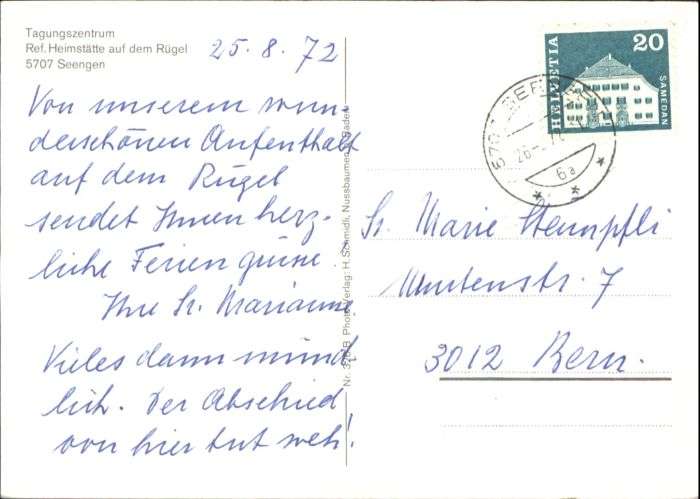 Tagungszentrum
Ref. Heimstätte auf dem Rügel
5707 Seengen
25.8.72
Von unserem wun-
derschönen Aufenthalt
auf dem Rügel
sendet Ihnen herz-
liche Feriengrüsse
Ihre Sr. Marianne
Vieles dann münd-
lich. Der Abschied
von hier tut weh!
Nr. Photo Verlag: H. Schmidli, Nussbaumen
HELVETIA
20
SAMEDAN
6a
Sr. Marie Stempfli
Muristr. 7
3012 Bern.